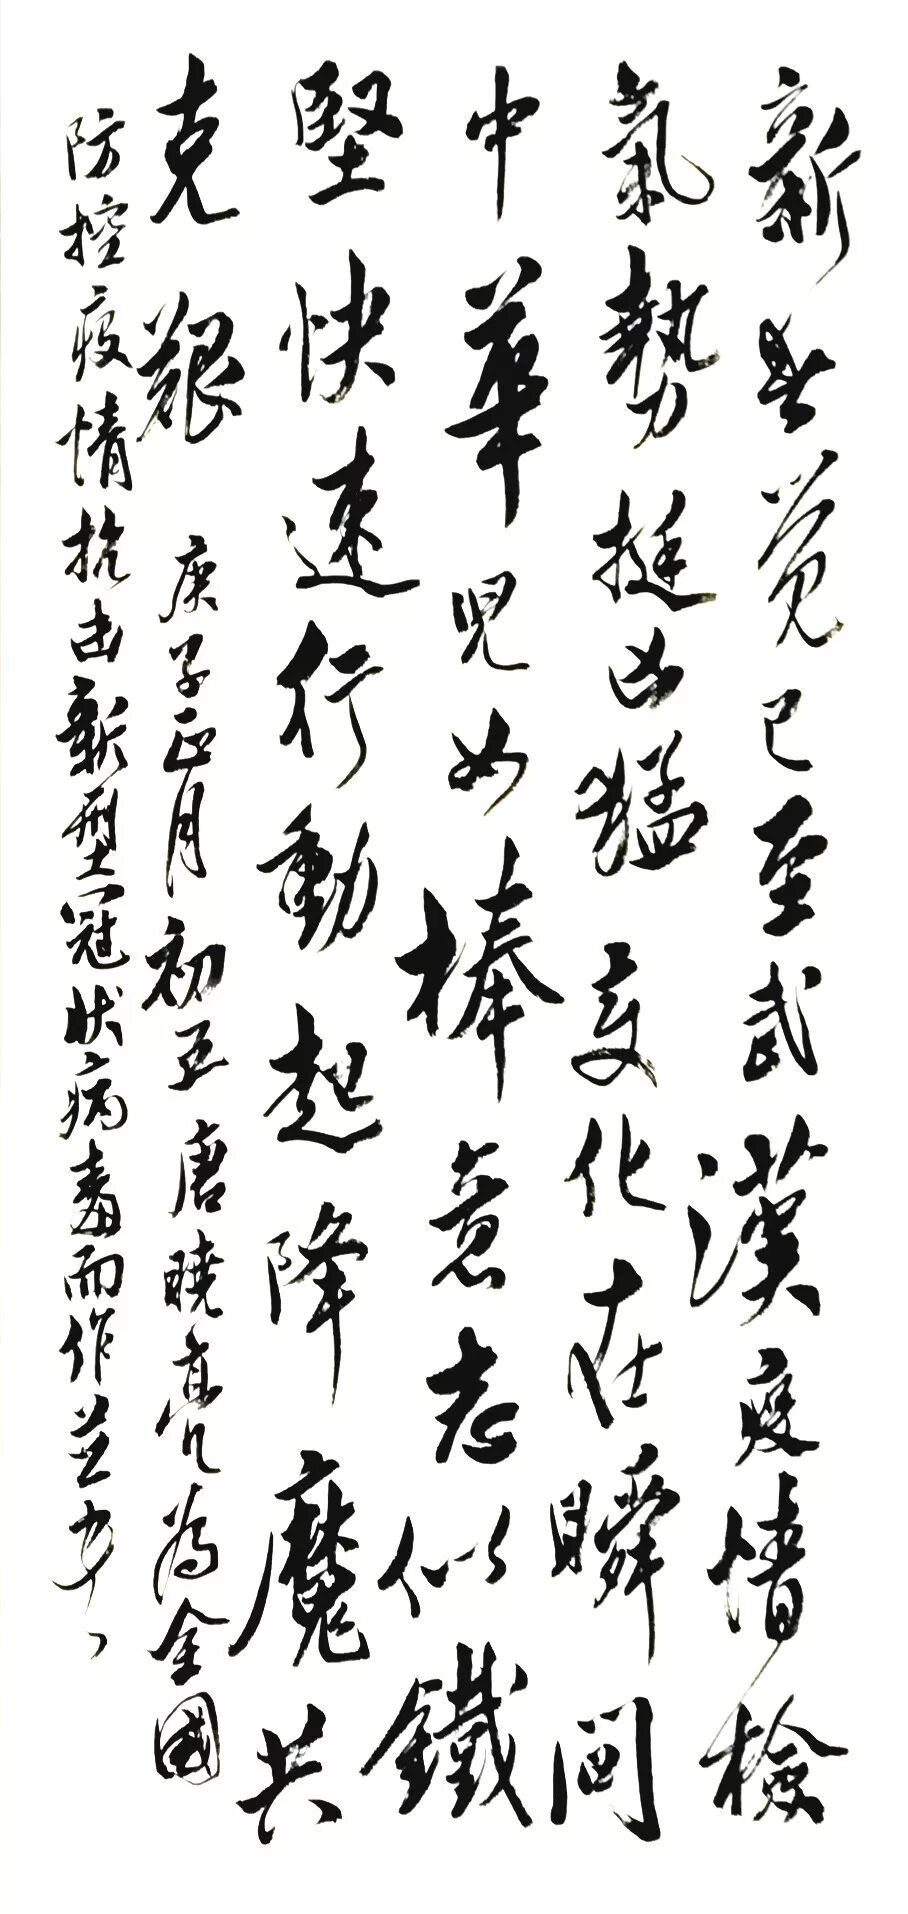 新春觉已至武漢疫情檢
氣勢挺凶猛变化在瞬间
中華兒女棒意志似鐵
堅快速行動起降魔共
克艱 庚子正月初五唐曉亮為全國
防控疫情抗击新型冠狀病毒而作並书